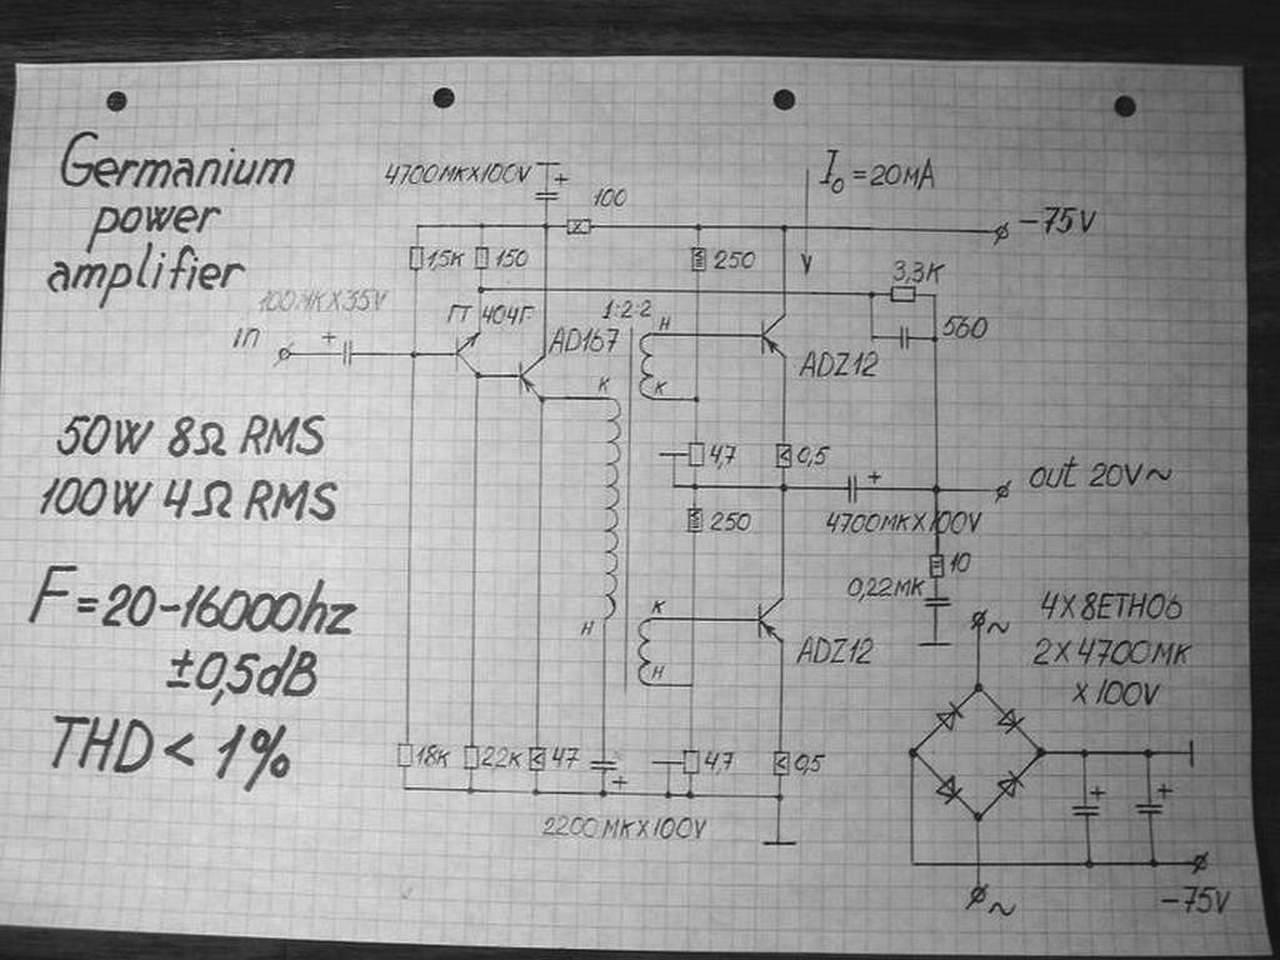 Germanium
power
amplifier
4700МКX100V
+
100
I₀ = 20мА
-75V
1,5к
150
250
3,3к
100МКX35V
ГТ 404Г
1:2:2
н
560
in
+
AD167
ADZ12
к
к
50W 8Ω RMS
4,7
0,5
100W 4Ω RMS
+
out 20V~
250
4700МКX100V
10
0,22МК
F=20-16000hz
±0,5dB
к
н
ADZ12
н
~
4X8ETH06
2X4700МК
X100V
THD < 1%
18к
2,2к
47
+
4,7
0,5
2200МКX100V
+
+
~
-75V